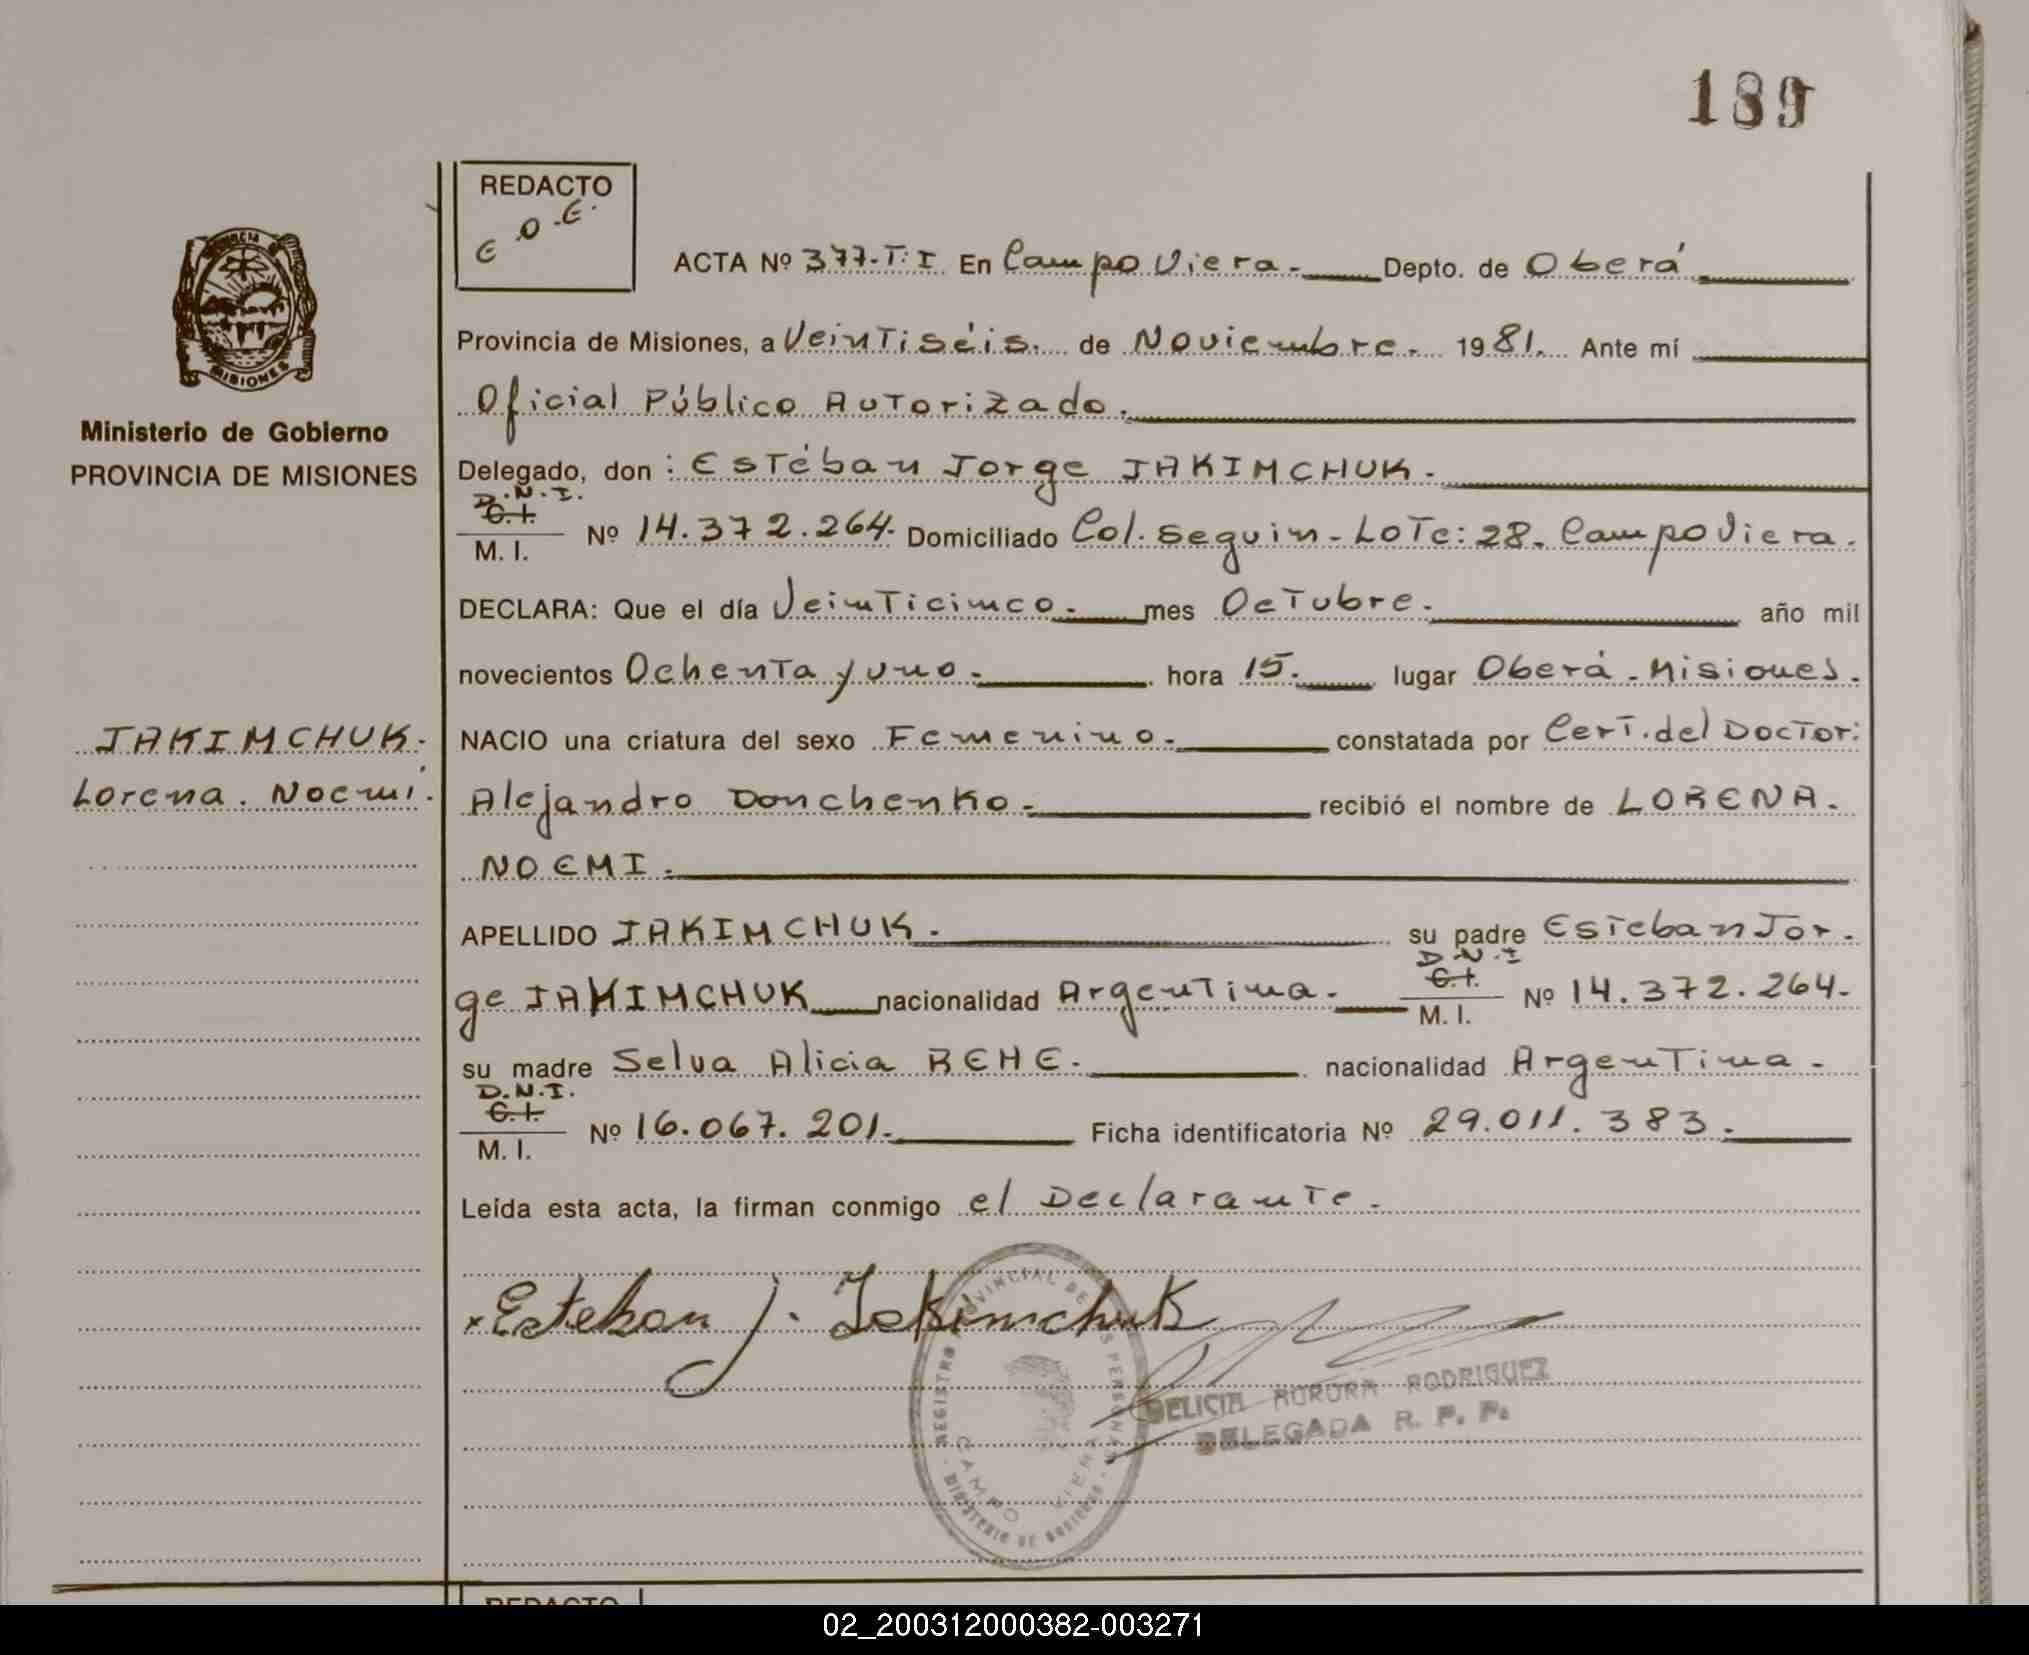 189
REDACTO
E.O.E.
ACTA Nº 377-T:I En Campo Viera.- Depto. de Oberá
Provincia de Misiones, a Veintiséis. de Noviembre. 1981. Ante mí
Oficial Público Autorizado.
Delegado, don : Estéban Jorge JAKIMCHUK.
D.N.I.
C.I.
M. I. Nº 14.372.264. Domiciliado Col. Seguin - Lote: 28. Campo Viera.
DECLARA: Que el día Veinticinco. mes Octubre. año mil
novecientos Ochenta y uno. hora 15. lugar Oberá - Misiones.
NACIO una criatura del sexo Femenino. constatada por Cert. del Doctor:
Alejandro Donchenko. recibió el nombre de LORENA.
NOEMI.
APELLIDO JAKIMCHUK. su padre Esteban Jor.
ge JAKIMCHUK nacionalidad Argentina.
D.N.I
C.I.
M. I. Nº 14.372.264.
su madre Selva Alicia REHE. nacionalidad Argentina.
D.N.I.
C.I.
M. I. Nº 16.067.201. Ficha identificatoria Nº 29.011.383.
Leída esta acta, la firman conmigo el Declarante.
Esteban J. Jakimchuk
REGISTRO PROVINCIAL DE LAS PERSONAS
CAMPO VIERA
MINISTERIO DE GOBIERNO
DELICIA AURORA RODRIGUEZ
DELEGADA R. P. P.
PROVINCIA
MISIONES
Ministerio de Gobierno
PROVINCIA DE MISIONES
JAKIMCHUK.
Lorena. Noemí.
REDACTO
02_200312000382-003271